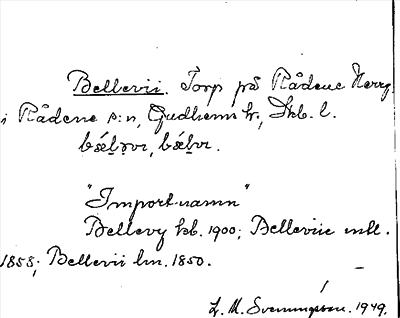 Bellevii. Torp på Rådene Herrg.
i Rådene s:n, Gudhems hd, Skb. l.
"Importnamn"
Bellevy kb. 1900; Belleviie mtl.
1858; Bellevii lm. 1850.
L. M. Svenungsson. 1949.